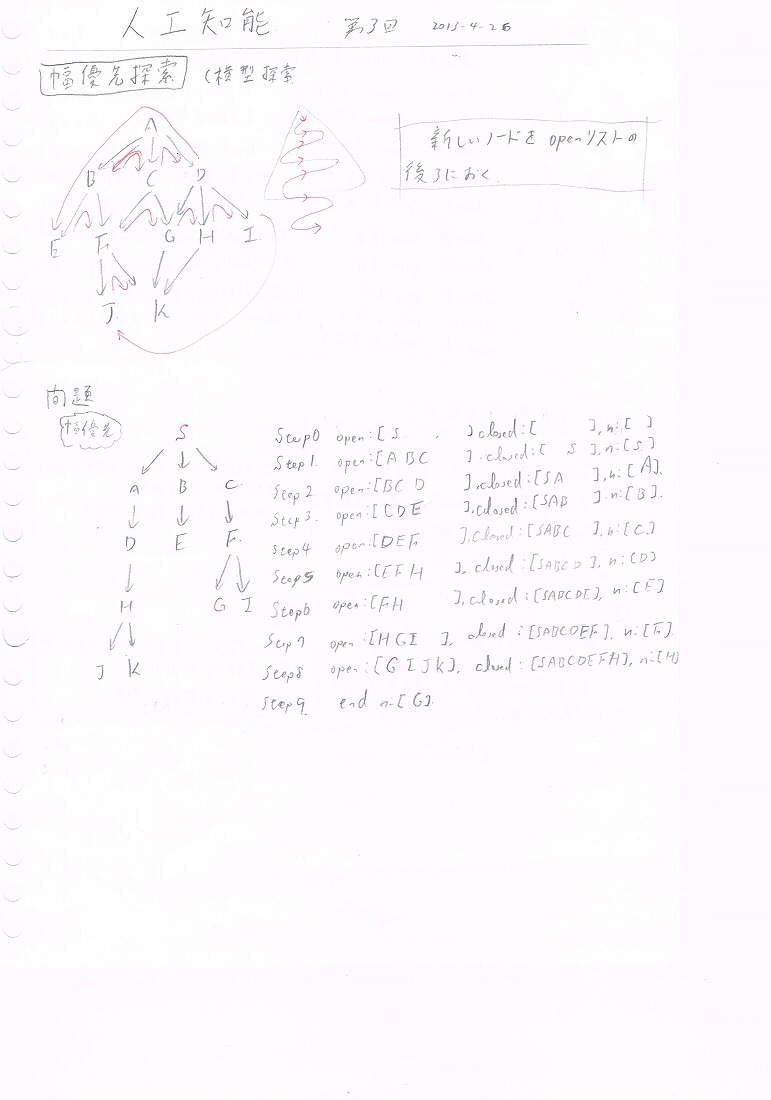 人工知能 第3回 2013-4-26
幅優先探索 (横型探索
新しいノードを openリストの
後ろにおく
A
B C D
E F G H I
J K
問題
幅優先
S
A B C
D E F
H G I
J K
Step0 open:[S ], closed:[ ], n:[ ]
Step1. open:[ABC ], closed:[ S ], n:[S]
Step2 open:[BCD ], closed:[SA ], n:[A].
Step3. open:[CDE ], closed:[SAB ], n:[B].
Step4 open:[DEF ], closed:[SABC ], n:[C]
Step5 open:[EFH ], closed:[SABCD], n:[D]
Step6 open:[FH ], closed:[SABCDE], n:[E]
Step7 open:[HGI ], closed:[SABCDEF], n:[F].
Step8 open:[GIJK], closed:[SABCDEFH], n:[H]
Step9. end n:[G].